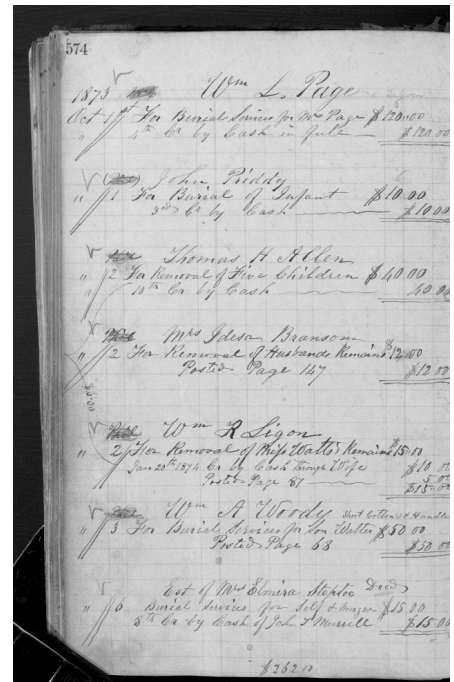 574
1873 Wm L. Page
Oct 1st For Burial Services for Mrs Page $120.00
" 4th Cr by Cash in full $120.00
John Priddy
" 1 For Burial of Infant $10.00
3rd Cr by Cash $10.00
Thomas H Allen
" 2 For Removal of Five Children $40.00
" 10th Cr by Cash 40.00
Mrs Idesa Bransom
" 2 For Removal of Husbands Remains $12.00
Posted Page 147 $12.00
Wm R Ligon
" 2 For Removal of Remains $15.00
Jan 20th 1874 Cr by Cash through Wife $10.00
Posted Page 81 5.00
$15.00
Wm A Woody
" 3 For Burial Services for Son Walter $50.00
Posted Page 68 $50.00
Est of Mrs Elmira Steptoe Decd
" 6 Burial Services for Self $15.00
8th Cr by Cash of John T Murrill $15.00
$262.00